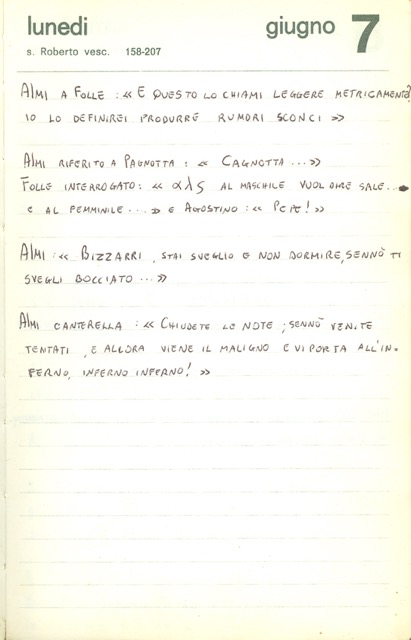 lunedi giugno 7
s. Roberto vesc. 158-207
ALMI A FOLLE : « E QUESTO LO CHIAMI LEGGERE METRICAMENTE?
IO LO DEFINIREI PRODURRE RUMORI SCONCI »
ALMI RIFERITO A PAGNOTTA : « CAGNOTTA ... »
FOLLE INTERROGATO : « αλς AL MASCHILE VUOL DIRE SALE...
E AL FEMMINILE ... » E AGOSTINO : « PEPE! »
ALMI : « BIZZARRI, STAI SVEGLIO E NON DORMIRE, SENNÒ TI
SVEGLI BOCCIATO ... »
ALMI CANTERELLA : « CHIUDETE LE NOTE ; SENNÒ VENITE
TENTATI, E ALLORA VIENE IL MALIGNO E VI PORTA ALL'IN-
FERNO, INFERNO INFERNO! »